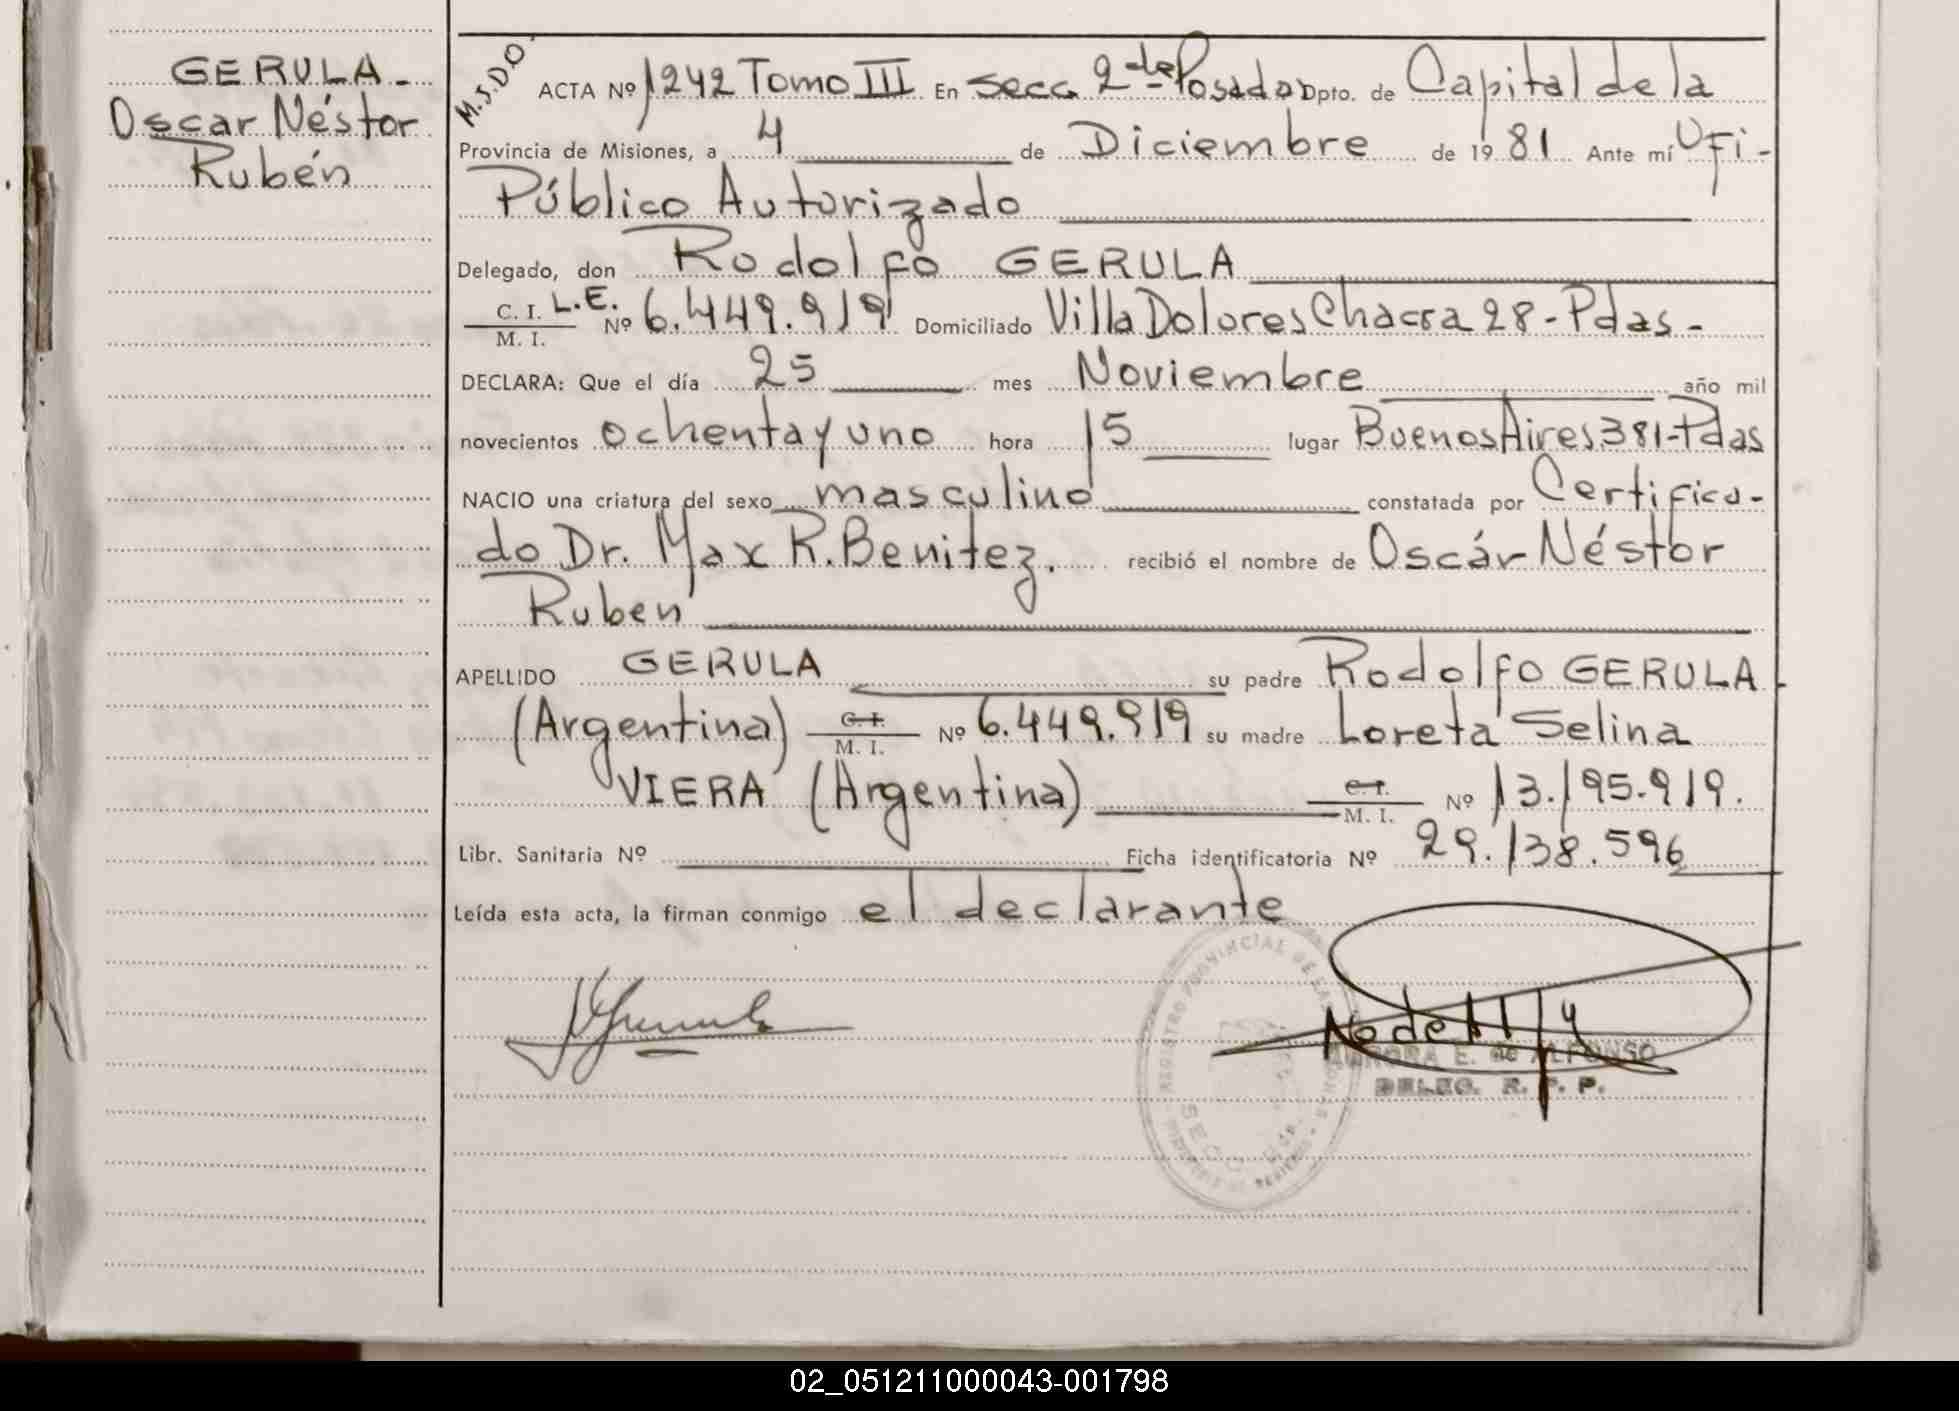 GERULA-
Oscar Néstor
Rubén
M.J.D.O.
ACTA Nº 1242 Tomo III En Secc. 2da Posadas Dpto. de Capital de la
Provincia de Misiones, a 4 de Diciembre de 1981 Ante mí Ofi-
Público Autorizado
Delegado, don Rodolfo GERULA
C. I. L.E.
M. I. Nº 6.449.919 Domiciliado Villa Dolores Chacra 28-Pdas-
DECLARA: Que el día 25 mes Noviembre año mil
novecientos ochenta y uno hora 15 lugar Buenos Aires 381-Pdas
NACIO una criatura del sexo masculino constatada por Certifica-
do Dr. Max R. Benitez. recibió el nombre de Oscár Néstor
Rubén
APELLIDO GERULA su padre Rodolfo GERULA
(Argentina) C. I.
M. I. Nº 6.449.919 su madre Loreta Selina
VIERA (Argentina) C. I.
M. I. Nº 13.195.919.
Libr. Sanitaria Nº Ficha identificatoria Nº 29.138.596
Leída esta acta, la firman conmigo el declarante
REGISTRO PROVINCIAL DE LAS PERSONAS
SECC.
AURORA E. de ALFONSO
DELEG. R. P. P.
02_051211000043-001798